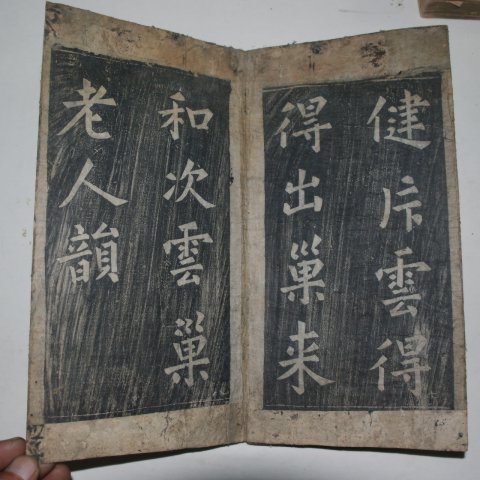 健片雲得
得出巢来
和次雲巢
老人韻